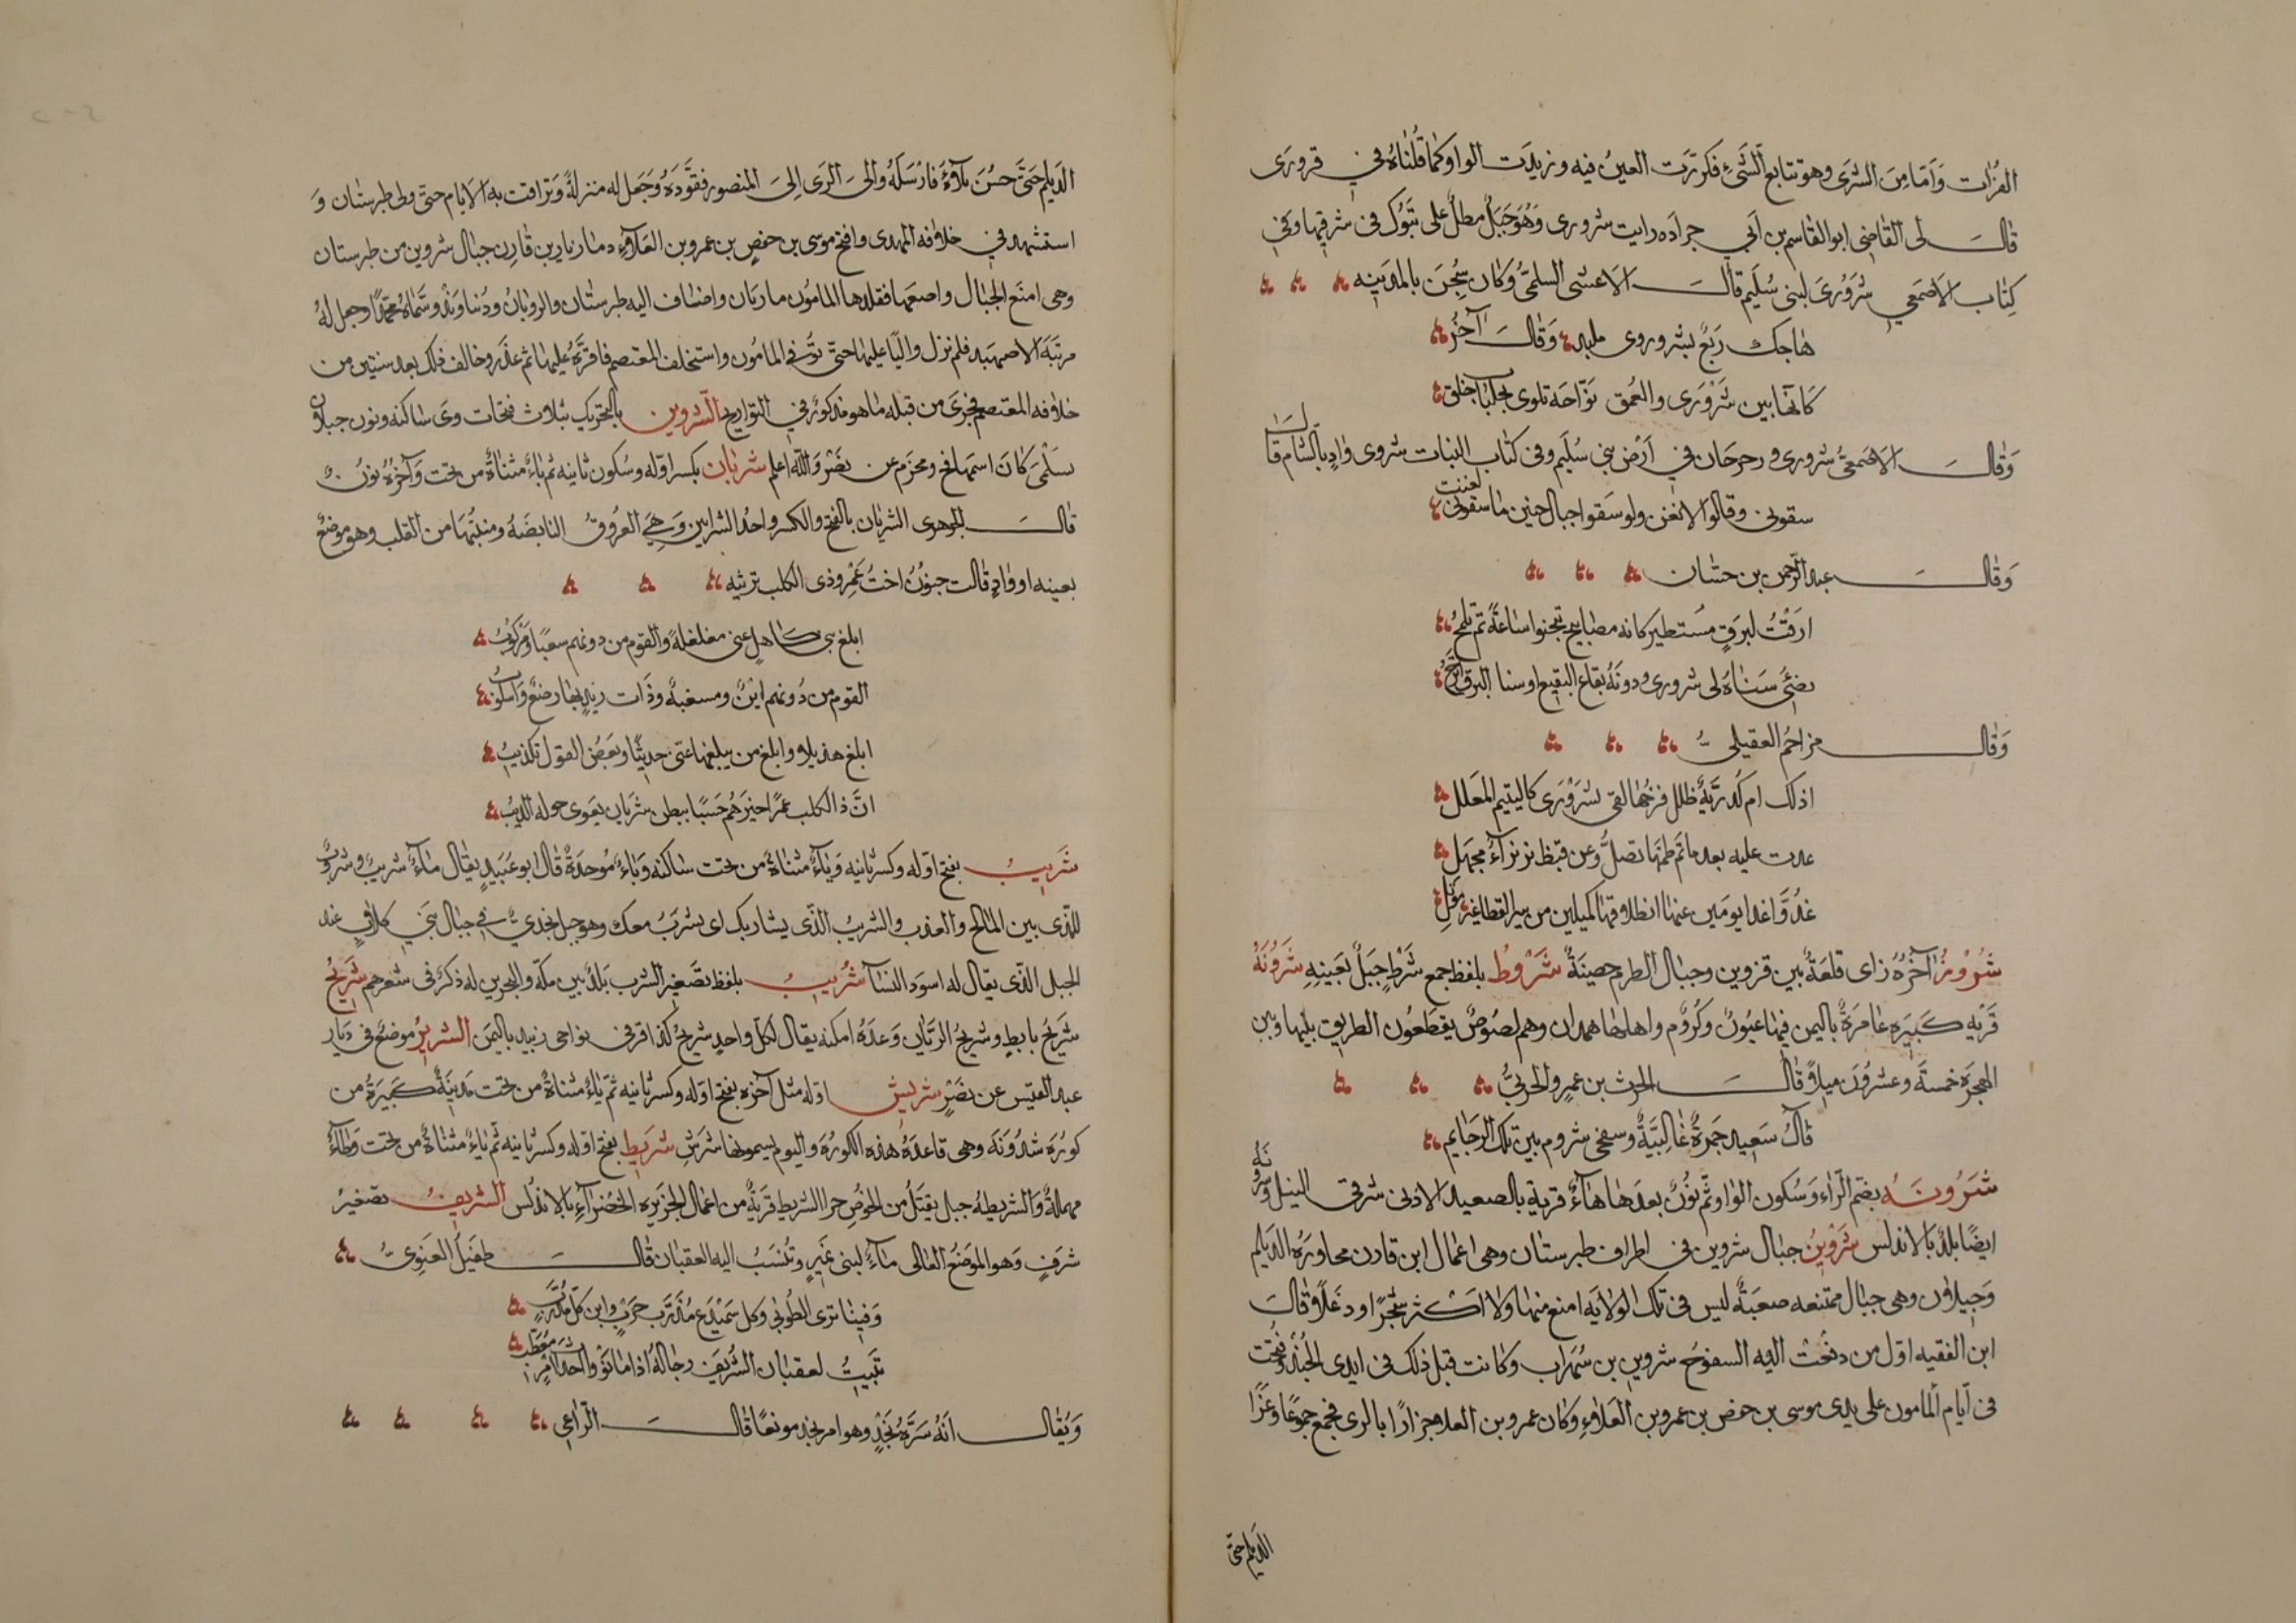 الفرات وَامّا مِنَ الشرى وهو تتابع الشَّىْء فكررَت العينُ فيه وزيدَت الواو كما قُلناهُ فى قرورَى
قال لى القاضى ابو القاسم بن ابى جراده رايت شرورى وَهُوَ جَبَلٌ مطلّ على تبُوك فى شرقيها وفى
كتاب الاصمعى شرَوْرىَ لبنى سُلَيم قال الاعشى السلمىُّ وَكان سُجِنَ بالمدَينه
هاجك رَبعٌ بشرورى ملبد وَقال آخُر
كَانها بين شَرَوْرَى والعُمق نوّاحَة تلوى بجلبابٍ خلق
وَقال الاصمعىُّ شرورى ورحرحان فى اَرض بنى سُلَيم وفى كتاب النبات شروى وادٍ بالشام قال
سقونى وقالوا لا تغن ولو سَقوا جبال حنين ما سقونى لغنت
وَقال عبد الرّحمن بن حسّان
ارقتُ لبرَقٍ مستطير كانه مصابيح تخبوا ساعَةً ثم تلمحُ
يضئُ سَناهُ لى شرورى ودونَهُ بقاع النقيع او سنا البرق انزحُ
وَقال مزاحمُ العقيلى
اذلك ام كُدرَّيةٌ ظلل فرخُها لقى بشرَوْرَى كاليتيم المعَلل
غدت عليه بعد ما تم ظمئها تصلُّ وعن قيظ بزيزآءَ مجهَل
غُدوَّا غدا يومَين عنها انطلاقها كميلين من سير القطا غير مؤتل
شُرُوْزُ آخرُهُ زاى قلعَةٌ بين قزوين وجبال الطرم حصينَةٌ شَرَوْطُ بلفظ جمع شرَطٍ جبَلٌ بعَينِهِ شَرَوُنَةُ
قَريَه كَبيَره عامرَةٌ باليمن فيها عيُونٌ وكُروُمٌ واهلها همدان وهم لصُوصٌ يقطعُون الطريق بينها وبين
الهجرَه خمسَة وعشروُنَ ميلاً قال الحرث بن عمرٍو الحزنىُّ
قآل سَعيد جَمرَةٌ غالِبَيَّةٌ وسفحى شروم بين تلك الرجايم
شَرُونَهُ بضم الرّاءِ وَسُكون الواو ثم نوُنٌ بعدَها هآءٌ قرية بالصعيد الادنى شرقى النيل وشرونَهُ
ايضًا بلدٌ بالاندلس شَرْوينُ جبال شروين فى اطراف طبرستان وهى اعمال ابن قارن مجاورَةُ الدَيلم
وَجيلان وهى جبال ممتنعه صعبَةٌ ليس فى تلك الولايَه امنع منها ولا اكثر شجَرًا ودغلًا وقال
ابن الفقيه اوّل من دفعت اليه السفوح شروين بن سُهراب وكانت قبل ذلك فى ايدى الجُند وفُتحت
فى ايّام المامون على يدى موسى بن حفص بن عمرو بن العَلاءِ وكان عمرو بن العلا جزارًا بالرى فجمع جمُوعًا وغزَا
الديلم حتى
الدَيلم حَتىَّ حسُنَ بلاؤُهُ فارْسَلَهُ والىَ الرَى الِىَ المنصور فقَوَّدَهُ وَجَعَل له منزلةً وَتراقت به الايام حتى ولى طبرستان وَ
استشهد فى خلافه المهدى وافتح موسى بن حفصٍ بن عمرو بن العَلآءِ ومازيار بن قارن جبال شروين من طبرستان
وهى امنَع الجبال واصعبها فقلدها المامُون مازيان واضاف اليه طبرستان والرويانُ ودُنباوند وسَمّاهُ محمّدًا وجعل لهُ
مرتبَة الاصهبد فلم نزل واليًا عليها حتىَّ توُفى المامُون واستخلف المعتصم فاقرَّهُ عليها ثم غدَر وخالف ذلك بعد سنتين من
خلافه المعتصم فجرىَ من قبله ما هو مذكورٌ فى التواريخ الشَروين بالتحريك بثلاث فتحات وىَ ساكنه ونون جبلان
بسَلْمىَ كانَ اسمها فخ ومحزم عن نصْر وَالله اعلم شريان بكسر اوّله وسُكون ثانيه ثم ياءٌ مثناةٌ من تحت وَآخرُهُ نونٌ
قال الجوهرى الشريَان بالفتح والكسر واحدُ الشرايين وَهِىَ العرُوقُ النابضَةُ ومنبتُهَا من القلب وهو موضعٌ
بعينه او وادٍ قالت جنوُبُ اختُ عَمْرٍو ذى الكلب ترثيه
ابلغ بنى كاهلٍ عنى مغلغلةً والقوم من دونهم سعيًا ومَركُوبُ
القوم من دُونهم اينٌ ومسغبةٌ وذَات ريدٍ بها رضعٌ وَاسلُوبُ
ابلغ هذيلا وابلغ من يبلغها عنى حديثًا وبعَضُ القوَل تكذيبُ
انَّ ذا الكلب عمرًا خيرَهُم حَسَبًا ببطن شريَان يعَوى حوله الذيبُ
شَريبُ بفتح اوّله وكسر ثانيه وَيآءٌ مثناةٌ من تحت ساكنه وَباءٌ مُوحدَةٌ قال ابو عبَيدٍ يقال مآءٌ شريبٌ وشروبٌ
للّذى بين المالح والعذب والشريبُ الذّى يشاربك اى يشرَبُ معك وهو جبل نجدىٌّ فى جبال بَنى كلابٍ عند
الجبل الذّى يقال له اسود النسَا شُريبُ بلفظ تصَغير الشرب بَلدٌ بين مكة والبحرين له ذكرٌ فى شعرهم شَرَيجُ
شَريجُ بابطٍ وشريجُ الرَيّان وعَدَةُ امكنه يقال لكلّ واحدٍ شريجٌ كذا قرئ بنواحى زبيد باليمَن الشريرُ موضعٌ فى دَيار
عبد القيس عن نصَرٍ شريش اوله مثل آخره بفتح اوّله وكسر ثانيه ثمّ ياءٌ مثناةٌ من تحت مَدينَةٌ كَبيَرَةٌ من
كورَه شذُوَنَه وهى قاعدَهُ هذه الكورَه واليوم يسمونها شرَشِ شَريَطُ بفتح اوله وكسر ثانيه ثم ياءٌ مثناةٌ من تحت وَطآءٌ
مهملةٌ وَالشريطهُ حبل يفتَلُ من الخوُصِ حرا الشريط قَريَةٌ من اعمال الجزيره الخضرآءِ بالاندُلس الشريفُ تصغيرُ
شرفٍ وَهو الموَضعُ العالى مآءٌ لبنى نمَيرٍ وتُنسَبُ اليه العقبان قال طفيَلُ الغنوِىُّ
وَفينا ترى الطُوبى وكل سَمَيْدَع مُدَرَّب حَربٍ وابن كل مُدرّبٍ
تبَيتُ لعقبان الشُرَيف رجالهُ اذا ما نوَوْا احداث امَرٍ مُعَطّب
وَيُقال انَّهُ سَرَّةُ نَجْدٍ وهو امر نجد موضعًا قال الرّاعى